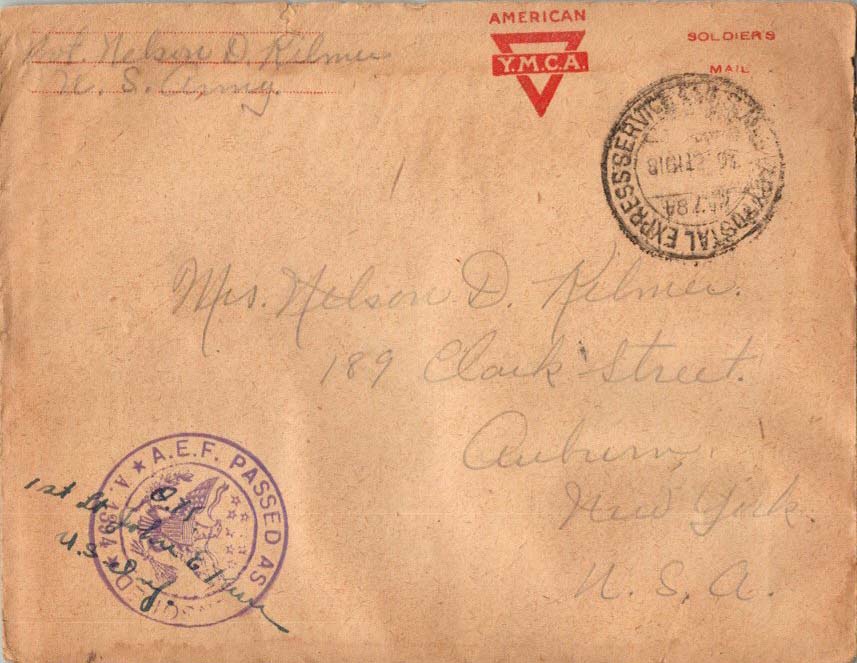 Pvt. Nelson D. Kilmer
U. S. Army.
AMERICAN
Y.M.C.A.
SOLDIER'S
MAIL
POSTAL EXPRESS SERVICE
1918
784
Mrs. Nelson D. Kilmer.
189 Clark Street.
Auburn,
New York.
U. S. A.
A.E.F. PASSED AS
A. 1394
O.K.
1st Lt. John E.
U.S.